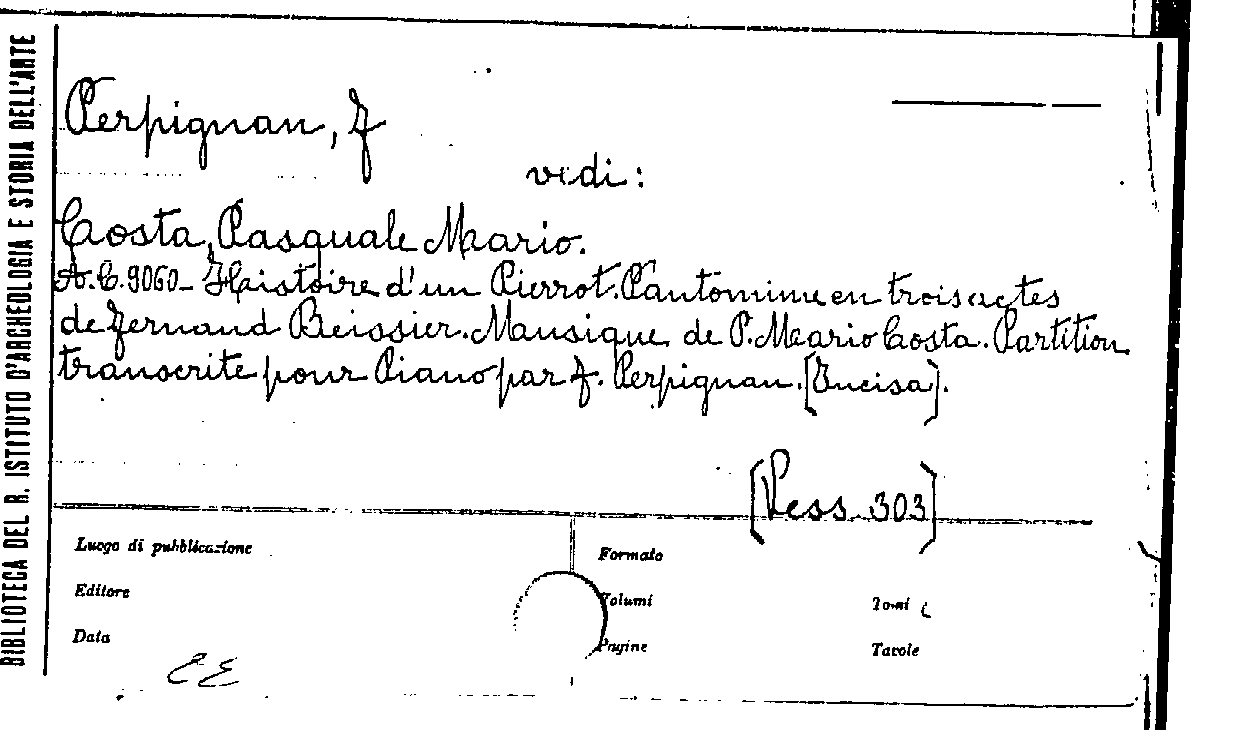 BIBLIOTECA DEL R. ISTITUTO D'ARCHEOLOGIA E STORIA DELL'ARTE
Perpignan, F
vedi:
Costa, Pasquale Mario.
A.C.9060- Histoire d'un Pierrot. Pantomime en trois actes
de Fernand Beissier. Mausique de P. Mario Costa. Partition
transcrite pour Piano par F. Perpignan. [Incisa].
[Vess. 303]
Luogo di pubblicazione
Formato
Editore
Volumi
Tomi
Data
Pagine
Tavole